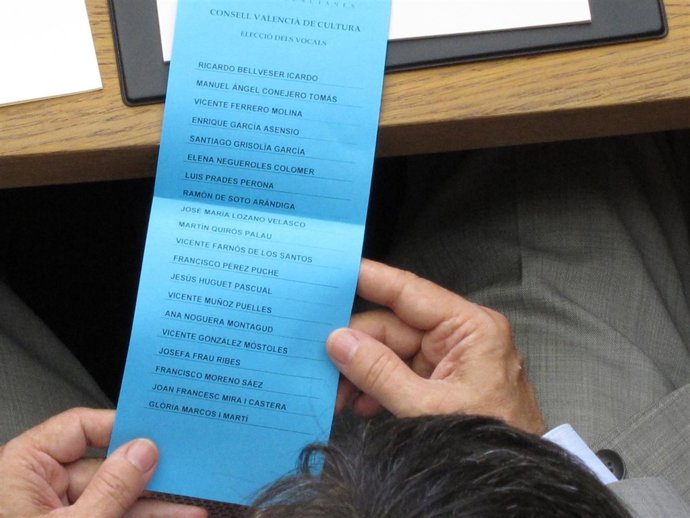 CONSELL VALENCIÀ DE CULTURA
ELECCIÓ DELS VOCALS
RICARDO BELLVESER ICARDO
MANUEL ÁNGEL CONEJERO TOMÁS
VICENTE FERRERO MOLINA
ENRIQUE GARCÍA ASENSIO
SANTIAGO GRISOLÍA GARCÍA
ELENA NEGUEROLES COLOMER
LUIS PRADES PERONA
RAMÓN DE SOTO ARÁNDIGA
JOSÉ MARÍA LOZANO VELASCO
MARTÍN QUIRÓS PALAU
VICENTE FARNÓS DE LOS SANTOS
FRANCISCO PEREZ PUCHE
JESÚS HUGUET PASCUAL
VICENTE MUÑOZ PUELLES
ANA NOGUERA MONTAGUD
VICENTE GONZÁLEZ MÓSTOLES
JOSEFA FRAU RIBES
FRANCISCO MORENO SÁEZ
JOAN FRANCESC MIRA I CASTERA
GLÒRIA MARCOS I MARTÍ